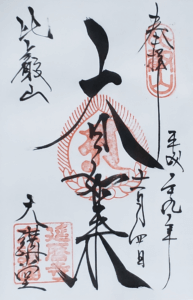 奉拝
平成二十九年
十一月四日
大日如来
比叡山
大講堂
延暦寺